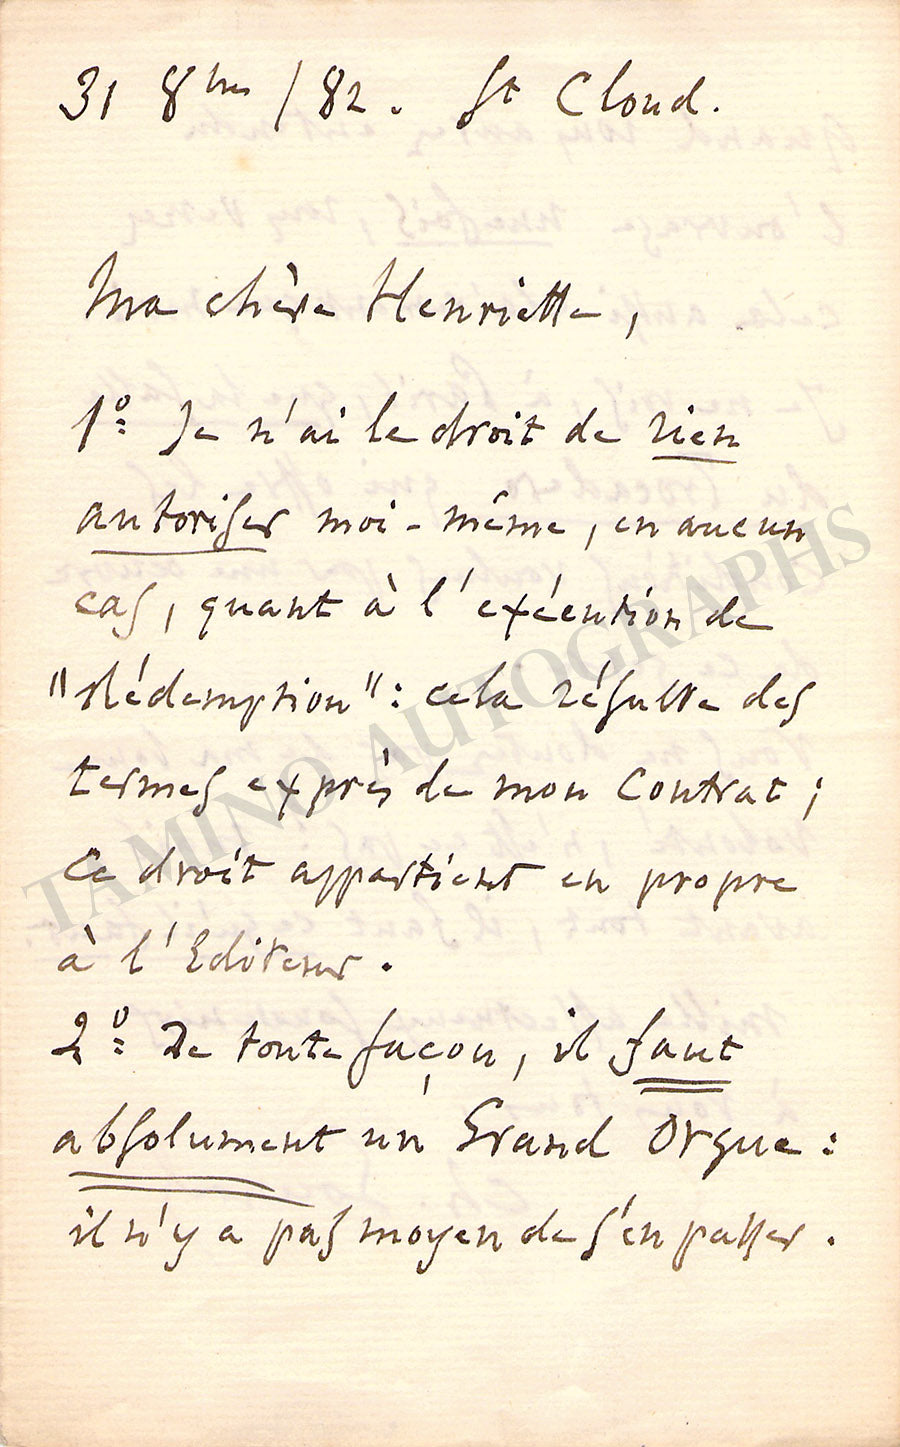 31 8bre /82. St Cloud.
Ma chère Henriette,
1º: Je n'ai le droit de rien
autoriser moi-même, en aucun
cas, quant à l'exécution de
"Rédemption": cela résulte des
termes exprès de mon Contrat;
Ce droit appartient en propre
à l'Editeur.
2º: De toute façon, il faut
absolument un Grand Orgue:
il n'y a pas moyen de s'en passer.
TAMINO AUTOGRAPHS